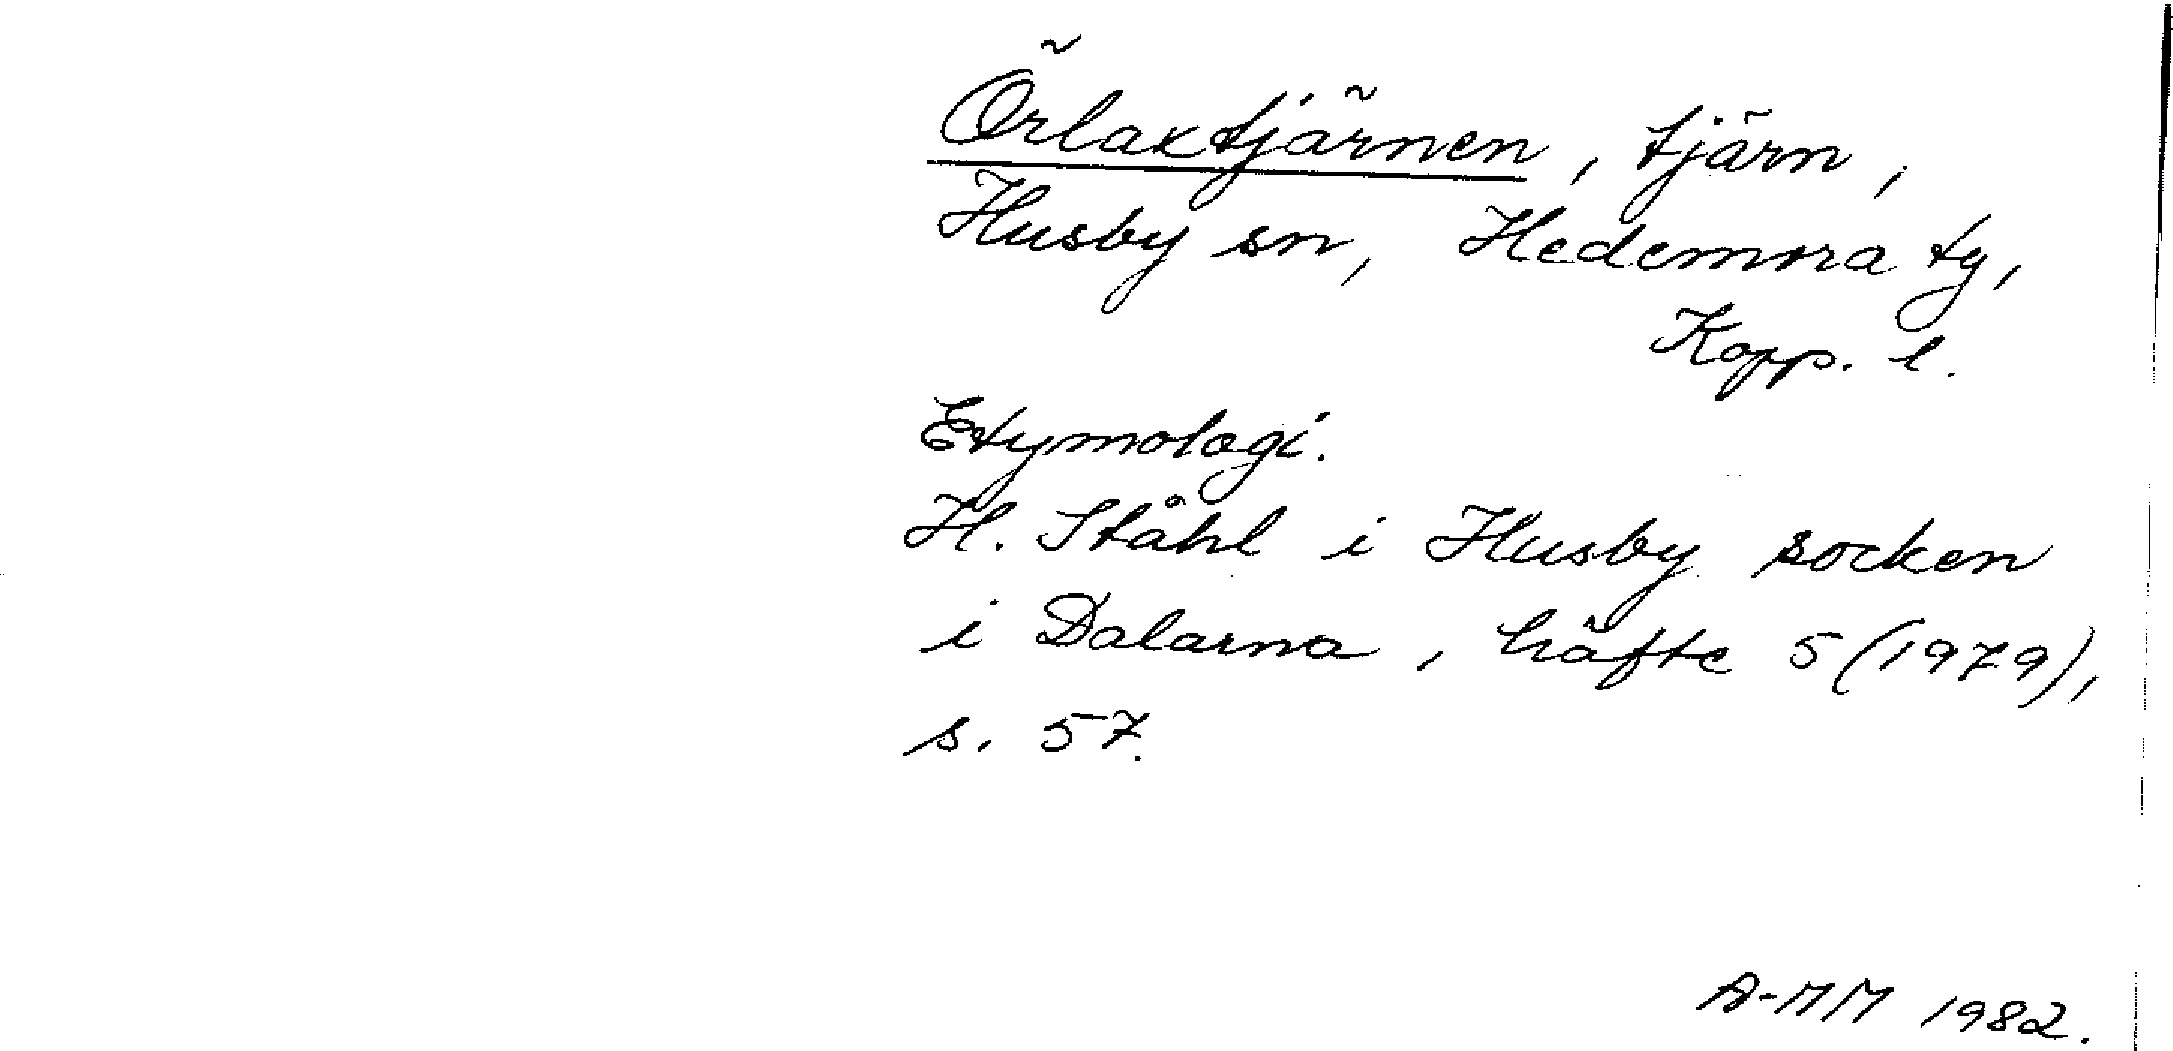 Örlaxtjärnen, tjärn,
Husby sn, Hedemora tg,
Kopp. l.
Etymologi.
H. Ståhl i Husby socken
i Dalarna, häfte 5 (1979),
s. 57.
A-MM 1982.